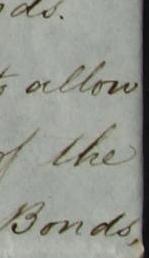 ds.
to allow
of the
Bonds,